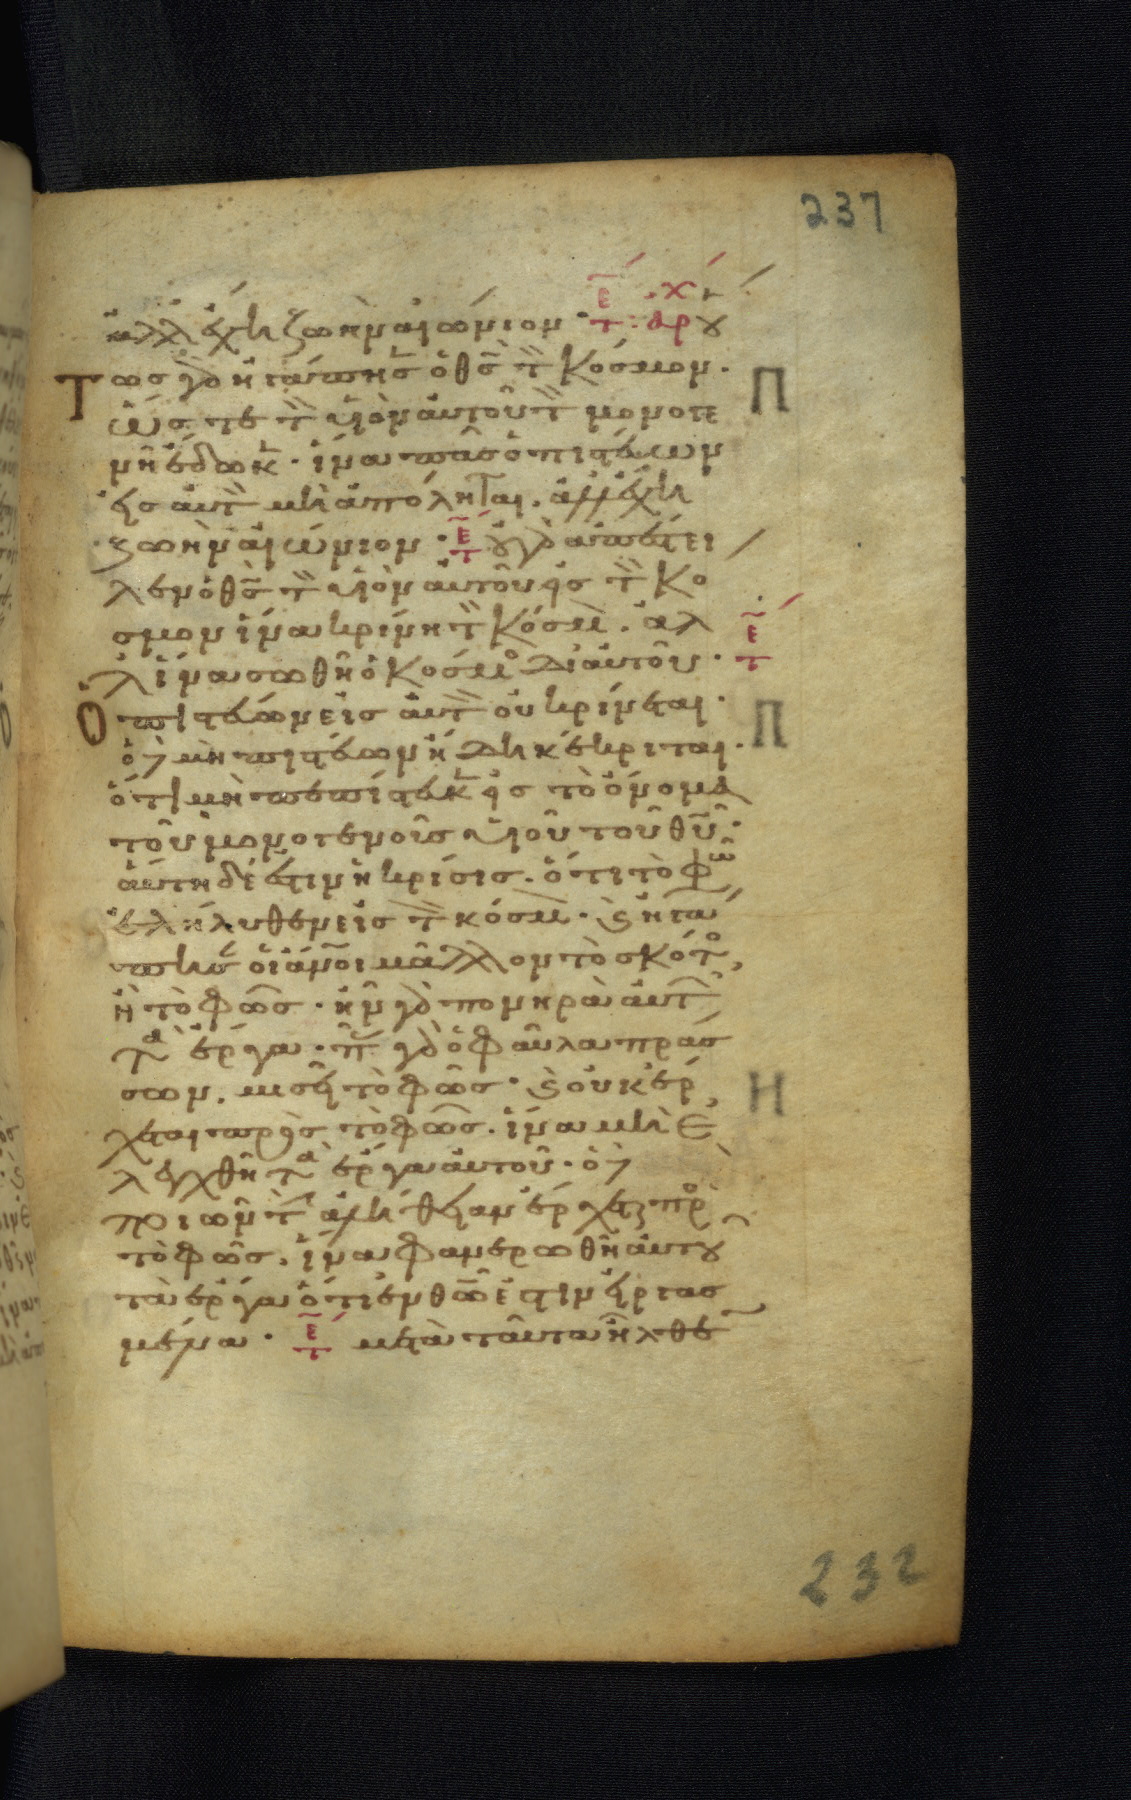 237
ἀλλ ἔχη ζωὴν αἰώνιον · τε : αρχ ου
Τως γὰρ ἠγάπησ ὁ θς τ κόσμον ·
ὥστε τ υἱὸν αὐτοῦ τ μονογε
Π
νῆ ἔδωκ · ἵνα πᾶς ὁ πιστεύων
εἰς αὐτ μὴ ἀπόληται . ἀλλ ἔχη
ζωὴν αἰώνιον · τε οὐ γὰρ ἀπέστει
λεν ὁ θς τ υἱὸν αὐτοῦ εἰς τ κό
σμον ἵνα κρίνη τ κόσμ . ἀλ
λ ἵνα σωθῆ ὁ κόσμο δι αὐτοῦ · τε
Ὁ πιστεύων εἰς αὐτ οὐ κρίνεται ·
Π
ὁ δ μὴ πιστεύων ἤδη κέκριται ·
ὅτι μὴ πεπίστευκ εἰς τὸ ὄνομα
τοῦ μονογενοῦς υἱοῦ τοῦ θυ ·
αὕτη δέ ἐστιν ἡ κρίσις . ὅτι τὸ φῶ
ἐλήλυθεν εἰς τ κόσμ · κ ἠγά
πησ οἱ ἀνοι μᾶλλον τὸ σκότο
ἢ τὸ φῶς · ἦν γὰρ πονηρὰ αὐτ
τα ἔργα · π γὰρ ὁ φαῦλα πράσ
σων . μισεῖ τὸ φῶς · κ οὐκ ἔρ
Η
χεται πρὸς τὸ φῶς . ἵνα μὴ ἐ
λεγχθῆ τα ἔργα αὐτοῦ · ὁ δ
ποιῶν τ ἀλήθειαν ἔρχεται πρὸ
τὸ φῶς . ἵνα φανερωθῆ αὐτοῦ
τὰ ἔργα ὅτι ἐν θῶ ἐστιν εἰργασ
μένα · τε μετὰ ταῦτα ἦλθε
232